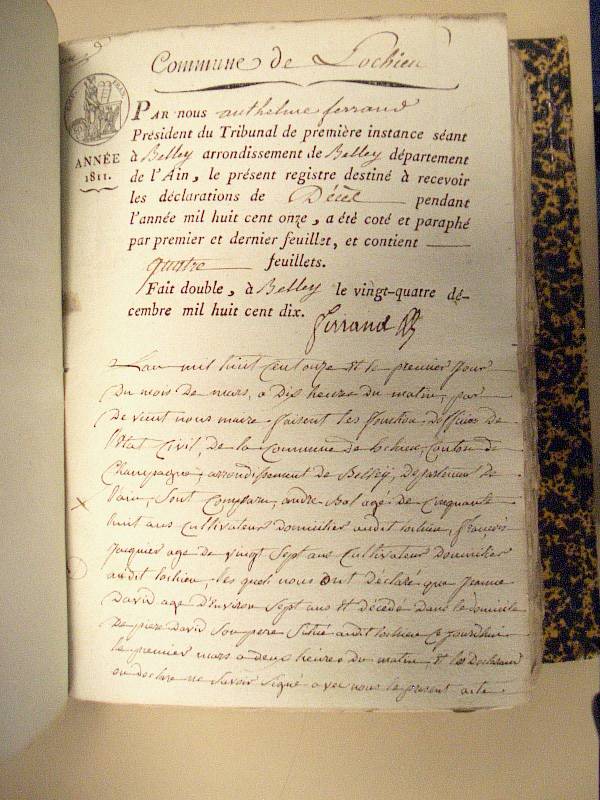 Commune de Lochieu
ANNÉE
1811.
PAR nous anthelme ferrand
Président du Tribunal de première instance séant
à Belley arrondissement de Belley département
de l'Ain, le présent registre destiné à recevoir
les déclarations de Décèl pendant
l'année mil huit cent onze, a été coté et paraphé
par premier et dernier feuillet, et contient
quatre feuillets.
Fait double, à Belley le vingt-quatre dé-
cembre mil huit cent dix.
ferrand
L'an mil huit cent onze et le premier jour
du mois de mars, a dix heures du matin, par
devent nous maire faisent les fonction d'officier de
l'état Civil, de la Commune de lochieu, Canton de
Champagne, arrondissement de Belley, Département de
l'ain, sont Comparu, andre Bal agé de Cinquante
huit ans Cultivateur domicilier audit lochieu, françois
Jacquier age de vaingt sept ans Cultivateur Domicilier
audit lochieu, les quels nous ont declaré que jeanne
David age d'Environ sept ans et décédé dans le domicile
de piere David son pere situé audit lochieu Ce jourdhui
le premier mars a deux heures du matin et les declarant
on declare ne savoir signé avec nous le present acte